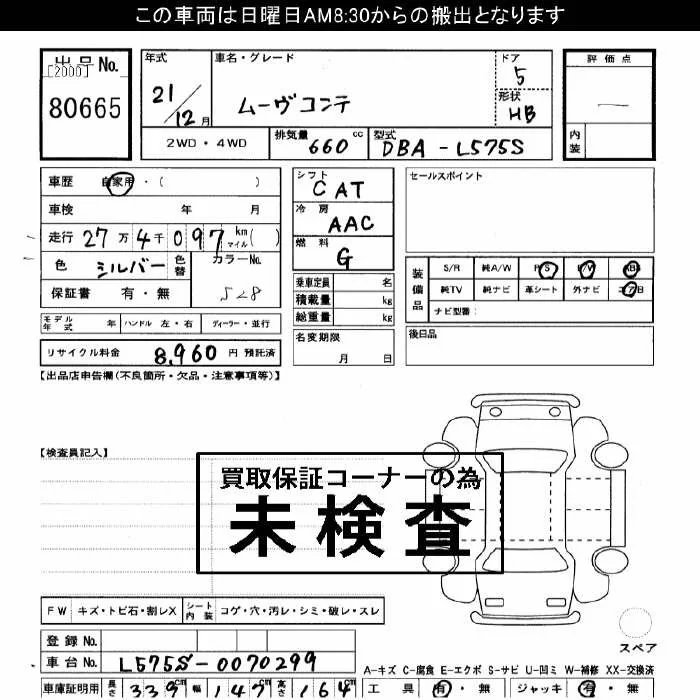 この車両は日曜日AM8:30からの搬出となります
出品 No.
[2000]
80665
年式
21/12月
車名・グレード
ムーヴコンテ
ドア
5
形状
HB
評価点
内装
2WD・4WD
排気量 660 cc
型式 DBA-L575S
車歴 自家用・( )
車検 年 月
走行 27万4千097 km マイル ( )
色 シルバー 色替
カラーNo. S28
保証書 有・無
シフト CAT
冷房 AAC
燃料 G
乗車定員 名
積載量 kg
総重量 kg
セールスポイント
装備品
S/R 純A/W P/S P/W ABS
純TV 純ナビ 革シート 外ナビ エアB
ナビ型番:
モデル年式 年 ハンドル 左・右 ディーラー・並行
リサイクル料金 8,960 円 預託済
名変期限 月 日
後日品
【出品店申告欄(不良箇所・欠品・注意事項等)】
【検査員記入】
買取保証コーナーの為
未検査
FW キズ・トビ石・割レX シート内装 コゲ・穴・汚レ・シミ・破レ・スレ
登録 No.
車台 No. L575S-0070299
車庫証明用 長さ 339cm 幅 147cm 高さ 164cm
スペア
A-キズ C-腐食 E-エクボ S-サビ U-凹ミ W-補修 XX-交換済
工具 有・無 ジャッキ 有・無